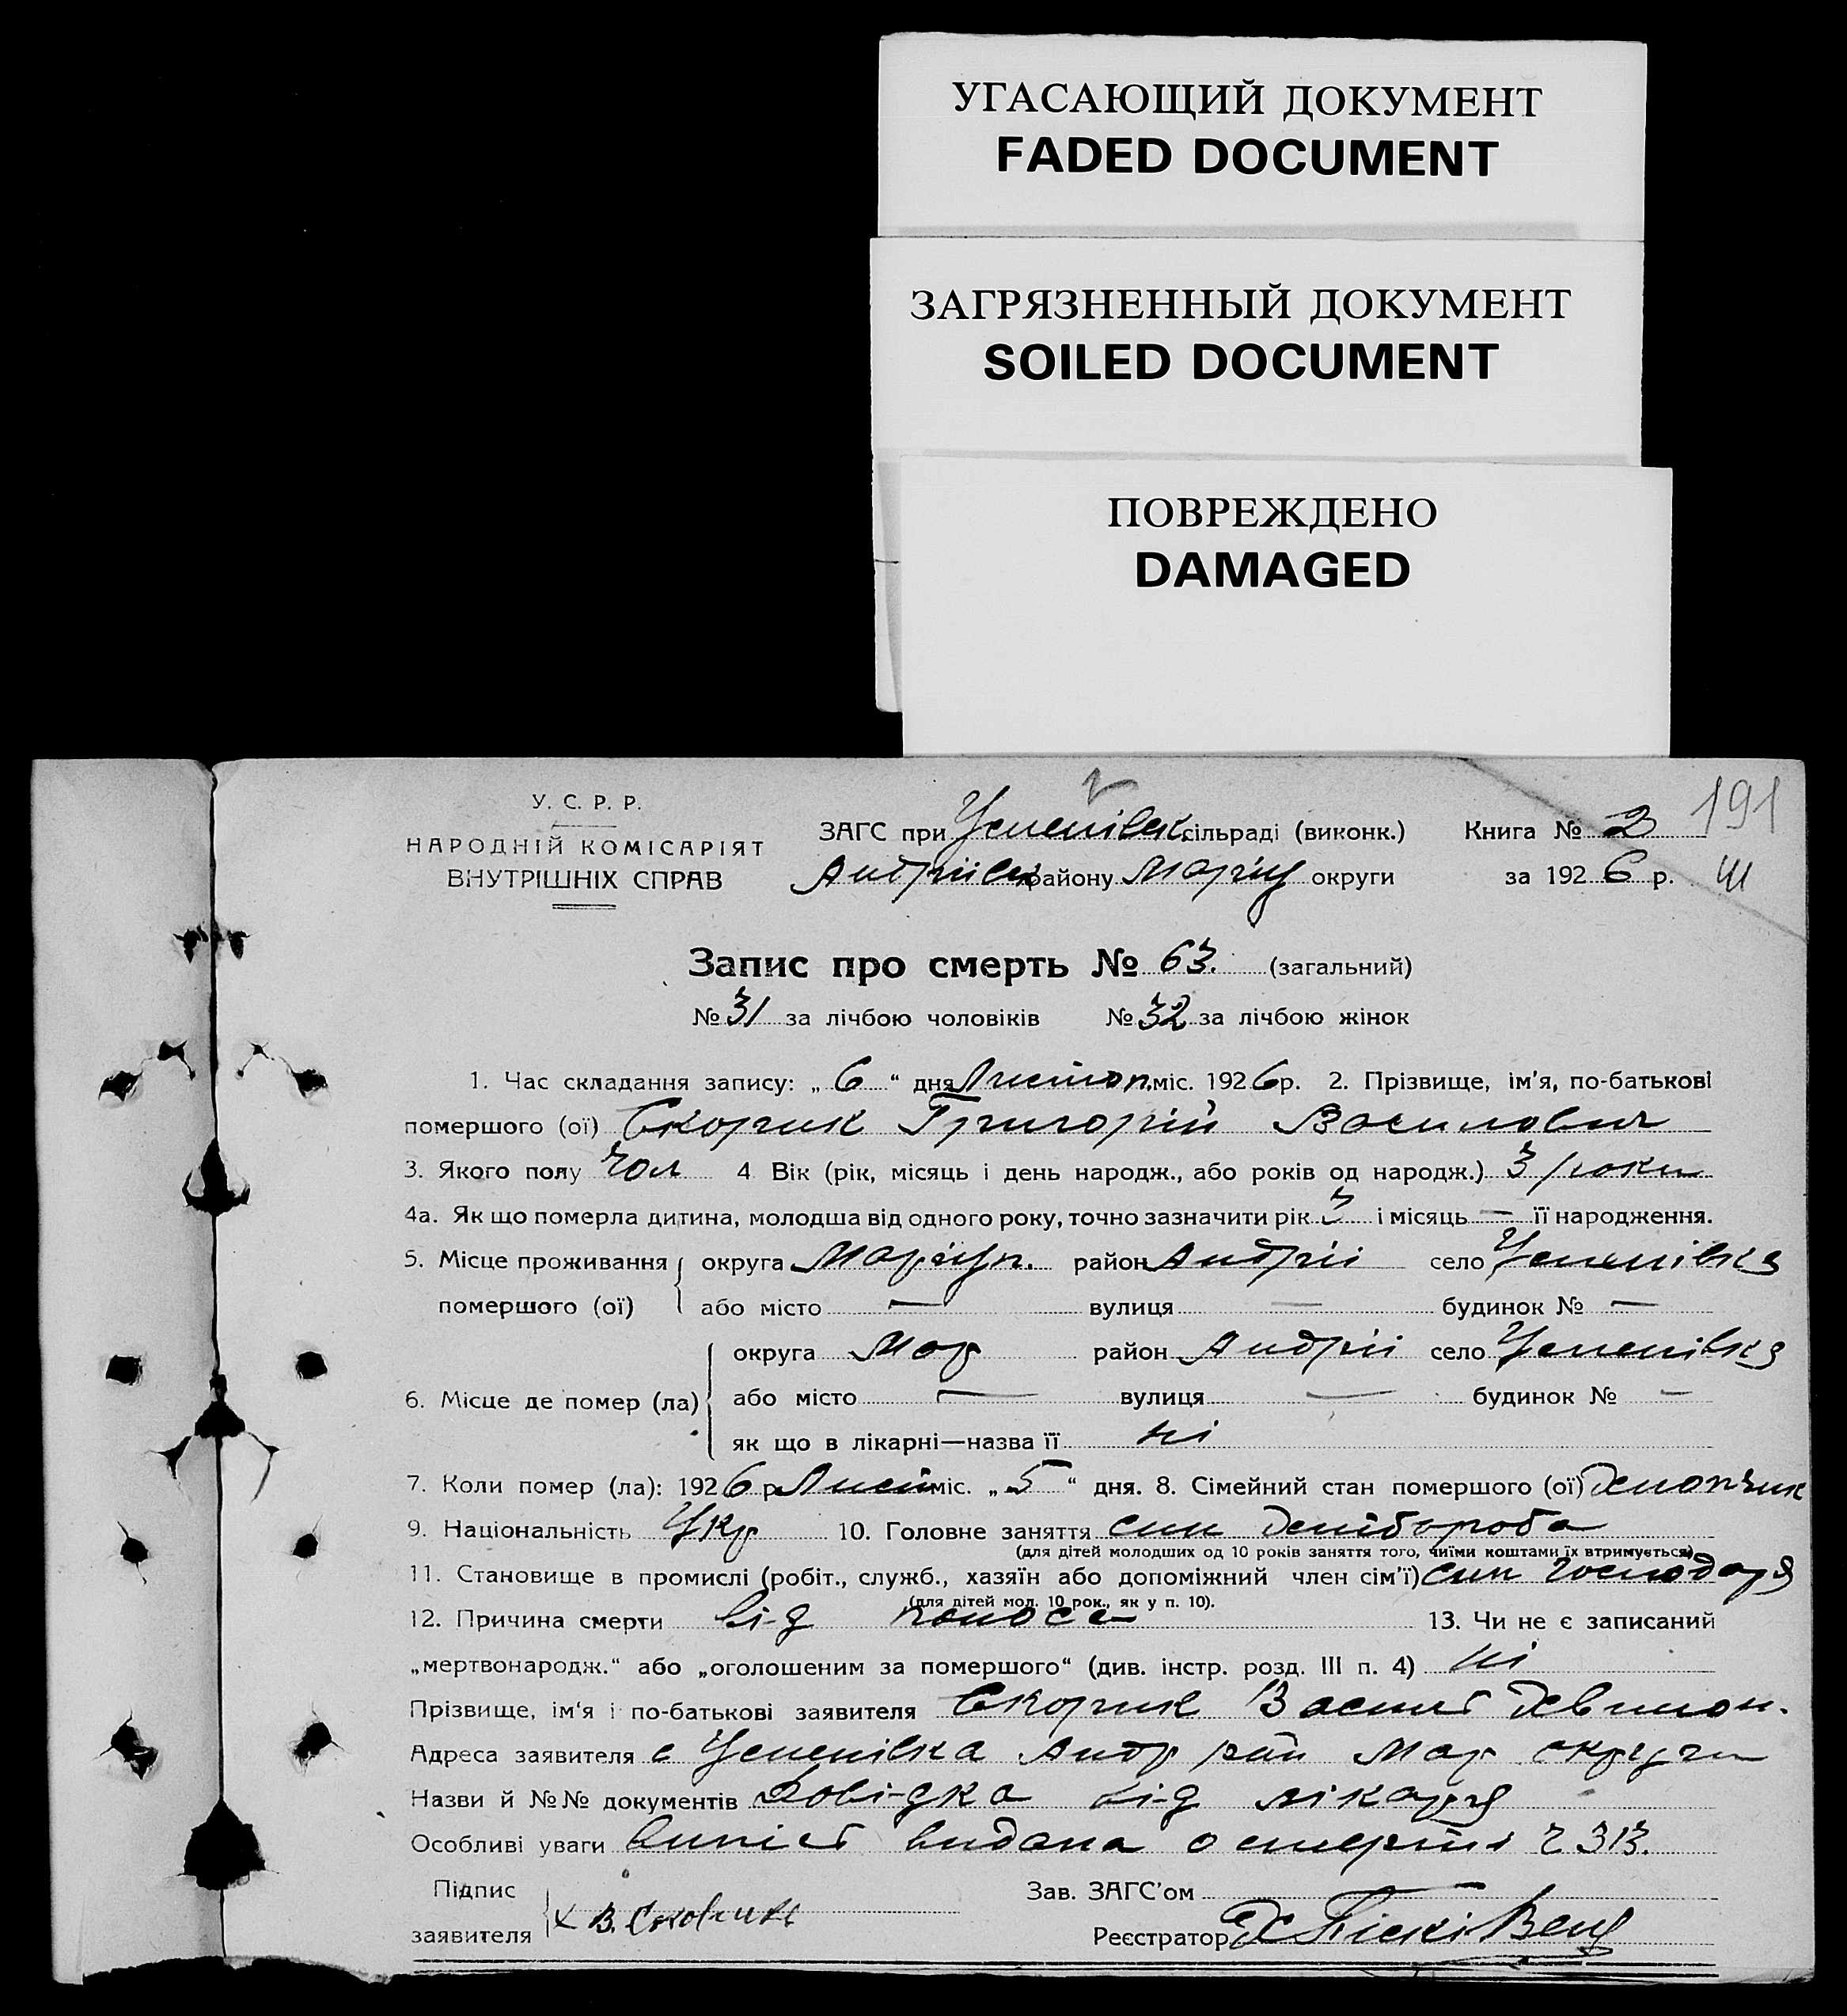 УГАСАЮЩИЙ ДОКУМЕНТ
FADED DOCUMENT
ЗАГРЯЗНЕННЫЙ ДОКУМЕНТ
SOILED DOCUMENT
ПОВРЕЖДЕНО
DAMAGED
191
У. С. Р. Р.
НАРОДНІЙ КОМІСАРІЯТ
ВНУТРІШНІХ СПРАВ
ЗАГС при Успенівск. сільраді (виконк.) Книга № 2
Андріївск району Маріуп округи за 1926 р.
Запис про смерть № 63. (загальний)
№ 31 за лічбою чоловіків № 32 за лічбою жінок
1. Час складання запису: „ 6 “ дня Листоп. міс. 1926 р. 2. Прізвище, ім'я, по-батькові
помершого (ої) Скорик Григорій Василович
3. Якого полу чол 4 Вік (рік, місяць і день народж., або років од народж.) 3 роки
4а. Як що померла дитина, молодша від одного року, точно зазначити рік 3 і місяць — її народження.
5. Місце проживання округа Маріуп. район Андрії село Успенівка
помершого (ої) або місто — вулиця — будинок № —
округа Мар район Андрії село Успенівка
6. Місце де помер (ла) або місто — вулиця — будинок № —
як що в лікарні—назва її ні
7. Коли помер (ла): 1926 р Лист міс. „ 5 “ дня. 8. Сімейний стан помершого (ої) хлопчик
9. Національність Укр 10. Головне заняття син хлібороба
(для дітей молодших од 10 років заняття того, чиїми коштами їх втримується)
11. Становище в промислі (робіт., служб., хазяїн або допоміжний член сім'ї) син господаря
(для дітей мол. 10 рок., як у п. 10).
12. Причина смерти від поноса 13. Чи не є записаний
„мертвонародж.“ або „оголошеним за помершого“ (див. інстр. розд. III п. 4) ні
Прізвище, ім'я і по-батькові заявителя Скорик Василь
Адреса заявителя с Успенівка Андр рай Мар округи
Назви й №№ документів Довідка від лікаря
Особливі уваги випись видана о смерти ч 313.
Підпис
заявителя В. Скорик
Зав. ЗАГС'ом
Реєстратор